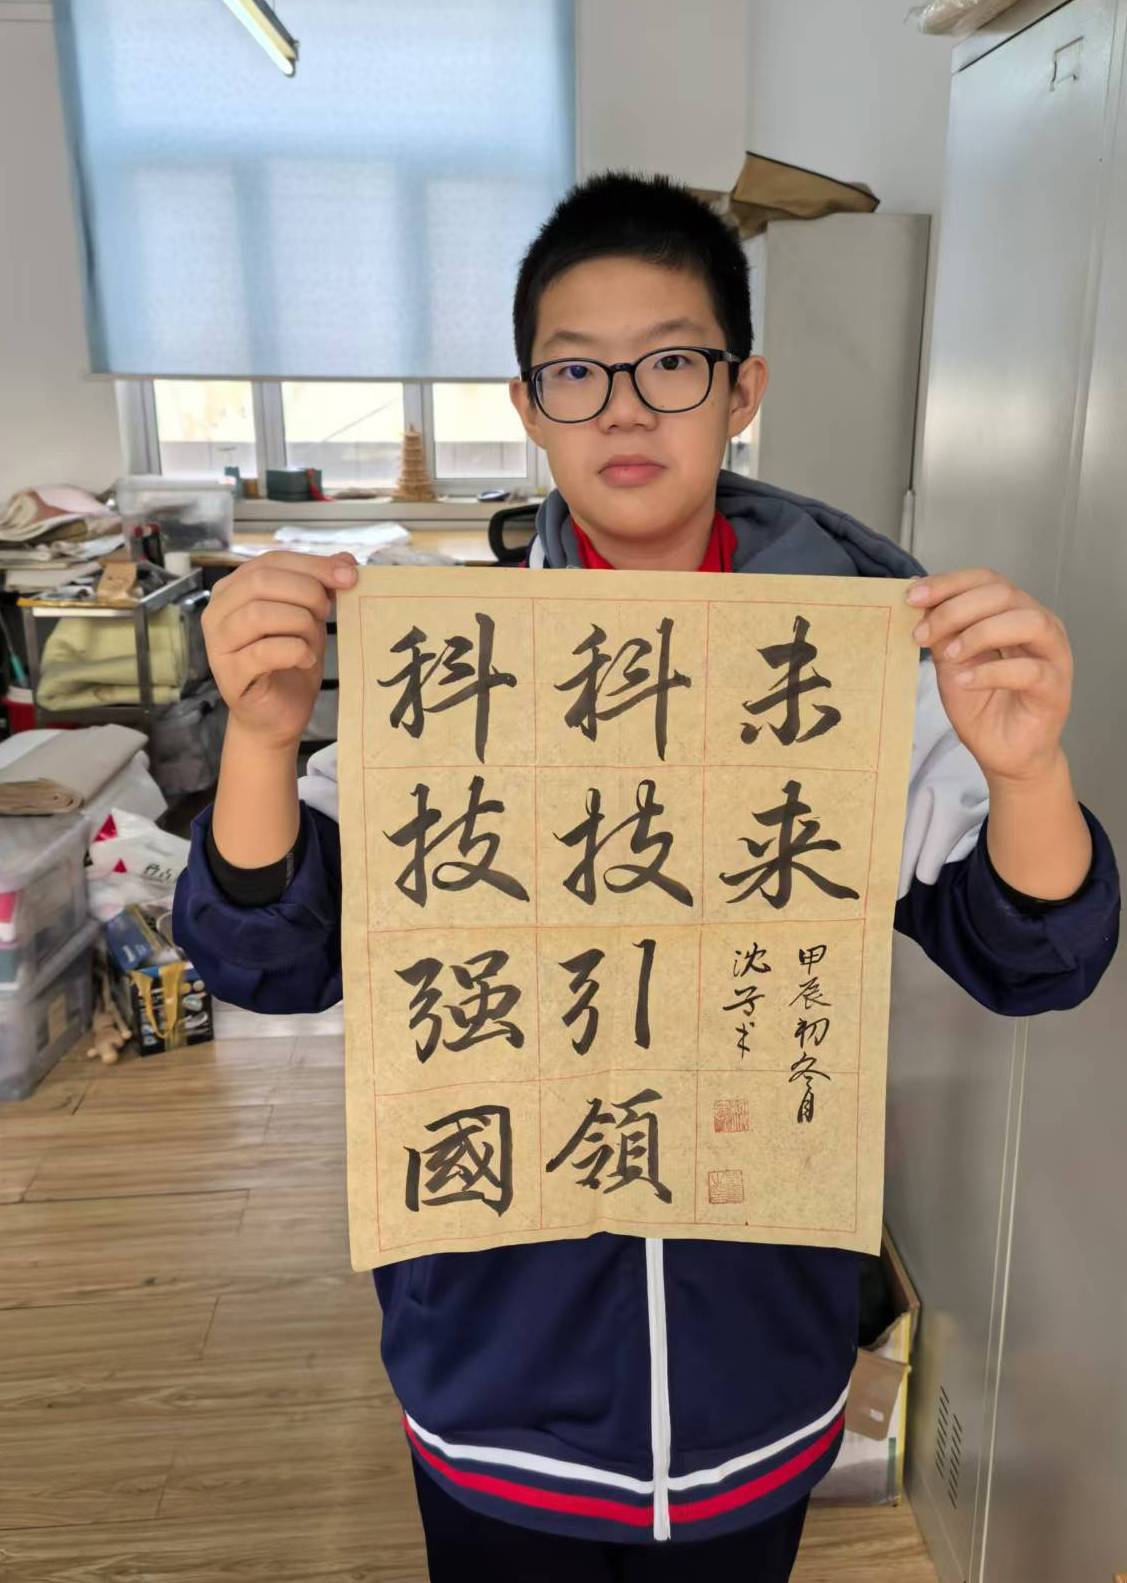 科技强國
科技引領
未来
甲辰初冬月
沈子